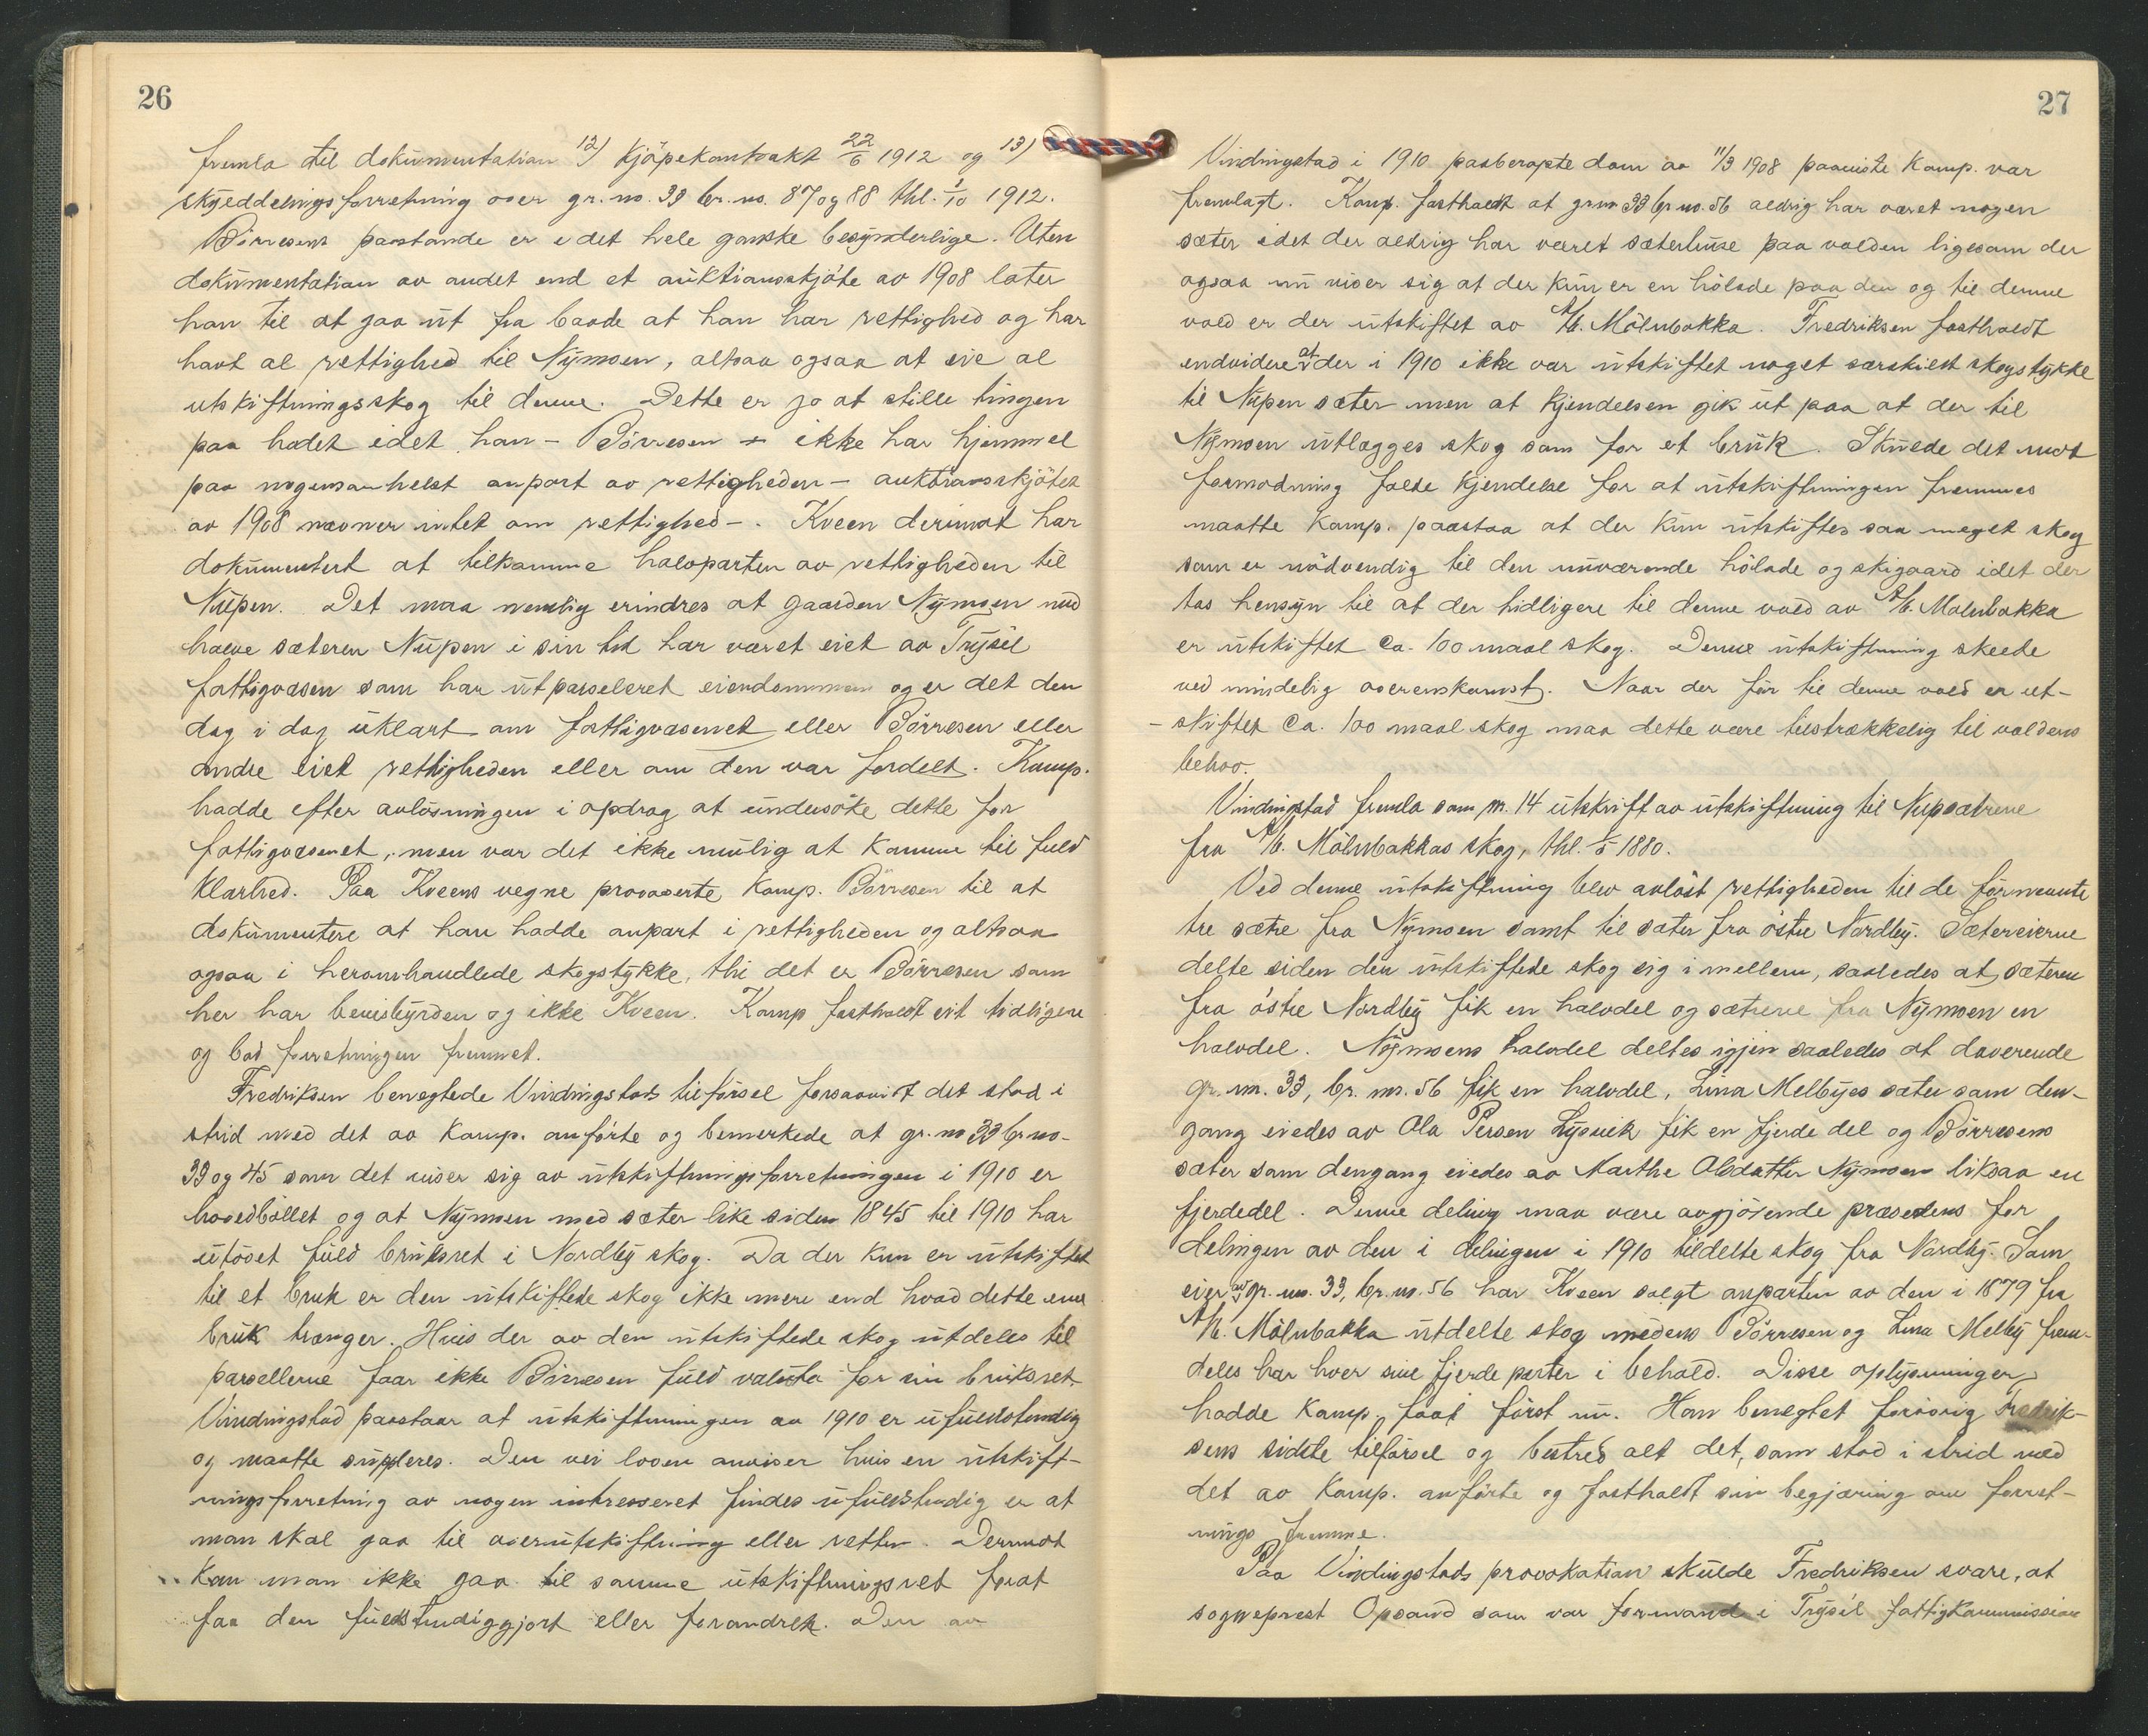 26
fremla til dokumentation 12) kjöpekontrakt 22/6 1912 og 13)
skyeddelingsforretning over gr. no. 33 br. no. 87 og 88 thl. 1/10 1912.
Börresens paastande er i det hele ganske besynderlige. Uten
dokumentation av andet end et auktionsskjöte av 1908 later
han til at gaa ut fra baade at han har rettighed og har
havt al rettighed til Nymoen, altsaa ogsaa at eie al
utskiftningsskog til denne. Dette er jo at stille tingen
paa hodet idet han - Börresen - ikke har hjemmel
paa nogensomhelst anpart av rettigheden - auktionsskjötet
av 1908 nævner intet om rettighed -. Kveen derimot har
dokumentert at tilkomme halvparten av rettigheden til
Nupen. Det maa nemlig erindres at gaarden Nymoen med
halve sæteren Nupen i sin tid har været eiet av Trysil
fattigvæsen som har utparseleret eiendommen og er det den
dag i dag uklart om fattigvæsenet eller Börresen eller
andre eiet rettigheden eller om den var fordelt. Komp.
hadde efter avlösningen i opdrag at undersöke dette for
fattigvæsenet, men var det ikke mulig at komme til fuld
klarhed. Paa Kveens vegne provoserte komp. Börresen til at
dokumentere at han hadde anpart i rettigheden og altsaa
ogsaa i heromhandlede skogstykke, thi det er Börresen som
her har bevisbyrden og ikke Kveen. Komp fastholdt sit tidligere
og bad forretningen fremmet.
Fredriksen benegtede Vindingstads tilförsel forsaavidt det stod i
strid med det av komp. anförte og bemerkede at gr. no 33 br no-
33 og 45 som det viser sig av utskiftningsforretningen i 1910 er
hovedböllet og at Nymoen med sæter like siden 1845 til 1910 har
utövet fuld bruksret i Nordby skog. Da der kun er utskiftet
til et bruk er den utskiftede skog ikke mere end hvad dette ene
bruk trænger. Hvis der av den utskiftede skog utdeles til
parsellerne faar ikke Börresen fuld valuta for sin bruksret.
Vindingstad paastaar at utskiftningen av 1910 er ufuldstendig
og maatte supleres. Den vei loven anviser hvis en utskift-
ningsforretning av nogen intresseret findes ufuldstendig er at
man skal gaa til overutskiftning eller retten. Derimot
kan man ikke gaa til samme utskiftningsret forat
faa den fuldstendiggjort eller forandret. Den av
27
Vindingstad i 1910 paaberopte dom av 11/3 1908 paaviste komp. var
fremlagt. Komp. fastholdt at grno 33 br no. 56 aldrig har været nogen
sæter idet der aldrig har været sæterhuse paa volden ligesom der
ogsaa nu viser sig at der kun er en hölade paa den og til denne
vold er der utskiftet av A/S. Mölnbakka. Fredriksen fastholdt
endvidere at der i 1910 ikke var utskiftet noget særskilt skogstykke
til Nupen sæter men at kjendelsen gik ut paa at der til
Nymoen utlægges skog som for et bruk. Skulde det mot
formodning falde kjendelse for at utskiftningen fremmes
maatte komp. paastaa at der kun utskiftes saa meget skog
som er nödvendig til den nuværende hölade og skigaard idet der
tas hensyn til at der tidligere til denne vold av A/S. Molnbakka
er utskiftet ca. 100 maal skog. Denne utskiftning skeede
ved mindelig overenskomst. Naar der för til denne vold er ut-
- skiftet ca. 100 maal skog maa dette være tilstrækkelig til voldens
behov.
Vindingstad fremla som nr. 14 utskrift av utskiftning til Nupsætrene
fra A/S. Mölnbakkas skog, thl. 1880.
Ved denne utskiftning blev avlöst rettigheden til de förnevnte
tre sætre fra Nymoen samt til sæter fra östre Nordby. Sætereierne
delte siden den utskiftede skog sig i mellem, saaledes at sæteren
fra östre Nordby fik en halvdel og sætrene fra Nymoen en
halvdel. Nymoens halvdel deltes igjen saaledes at daverende
gr. nr. 33, br. nr. 56 fik en halvdel, Lina Melbyes sæter som den-
gang eiedes av Ola Persen Lysvik fik en fjerde del og Börresens
sæter som dengang eiedes av Marthe Olsdatter Nymoen liksaa en
fjerdedel. Denne deling maa være avgjörende præsedens for
delingen av den i delingen i 1910 tildelte skog fra Nordby. Som
eier av gr. no. 33, br. no. 56 har Kveen solgt anparten av den i 1879 fra
A/S. Mölnbakka utdelte skog medens Börresen og Lina Melby frem-
deles har hver sine fjerde parter i behold. Disse oplysninger
hadde komp. faat först nu. Han benegtet forövrig Fredrik-
sens sidste tilförsel og bestred alt det, som stod i strid med
det av komp. anförte og fastholdt sin begjæring om forret-
nings fremme.
Paa Vindingstads provokation skulde Fredriksen svare, at
sogneprest Opsand som var formand i Trysil fattigkommission